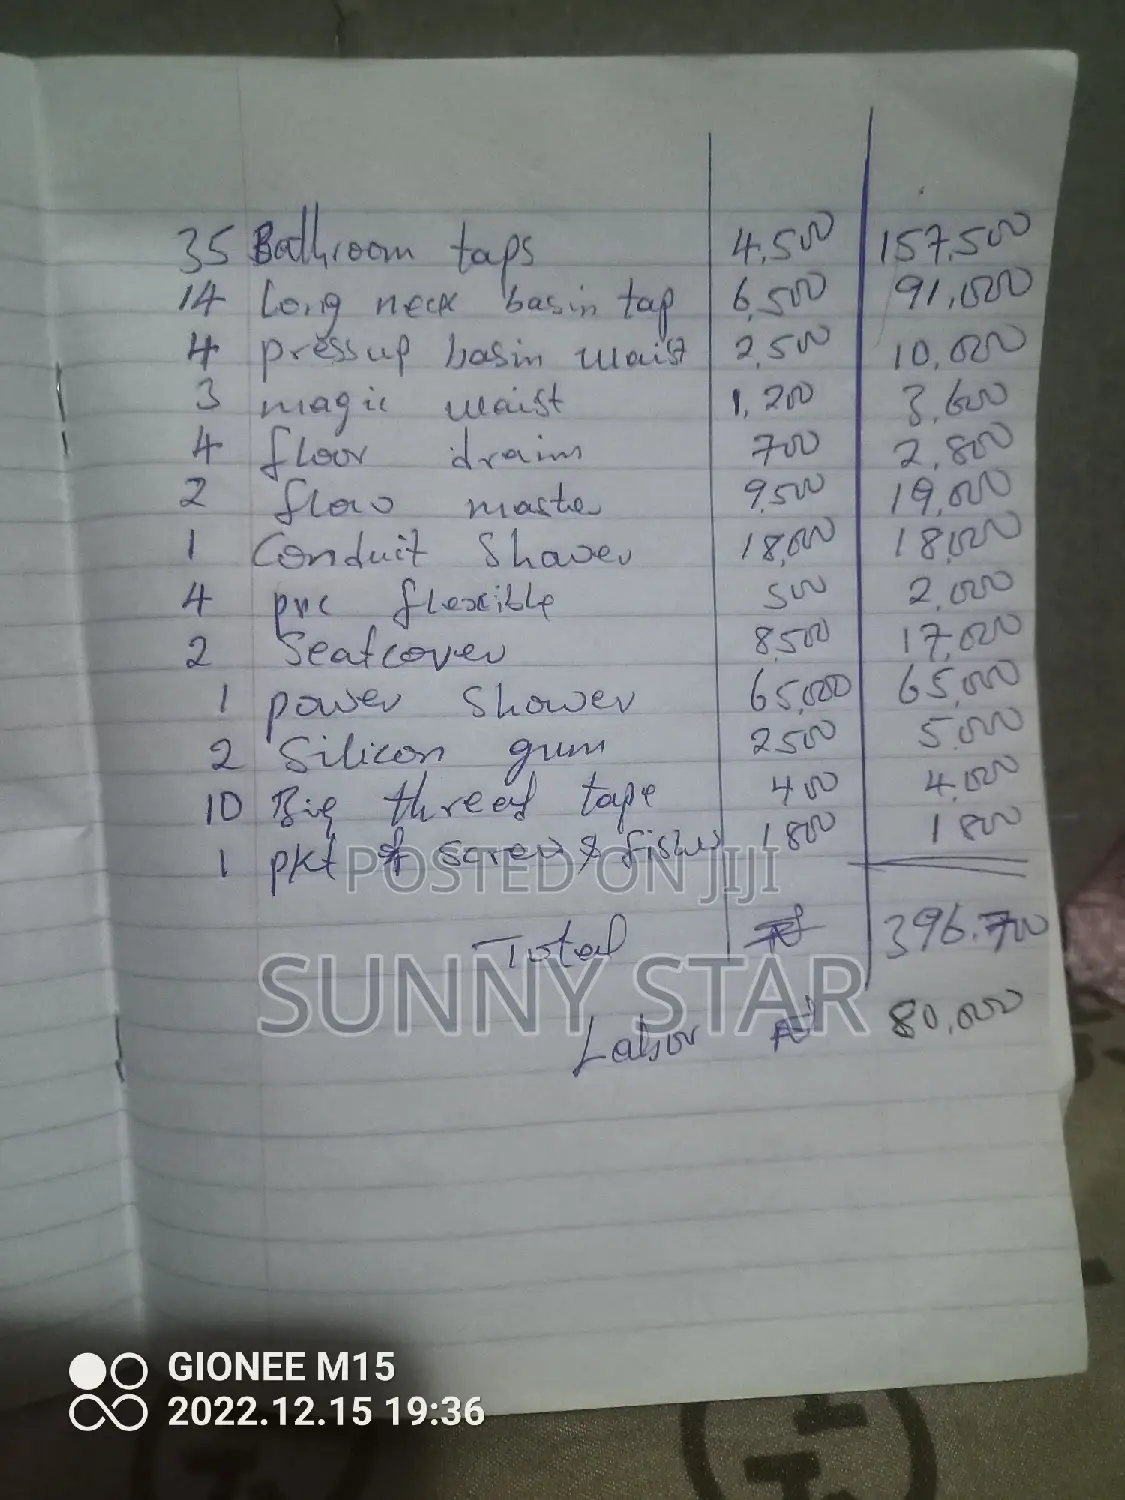 35 Bathroom taps 4,500 157,500
14 Long neck basin tap 6,500 91,000
4 press up basin waist 2,500 10,000
3 magic waist 1,200 3,600
4 floor drain 700 2,800
2 flow maste 9,500 19,000
1 Conduit Shower 18,000 18,000
4 pvc flexible 500 2,000
2 Seatcover 8,500 17,000
1 power Shower 65,000 65,000
2 Silicon gum 2500 5,000
10 Big thread tape 400 4,000
1 pkt of screw & fisher 1800 1800
POSTED ON JIJI
Total ₦ 396.700
SUNNY STAR
Labor ₦ 80,000
GIONEE M15
2022.12.15 19:36